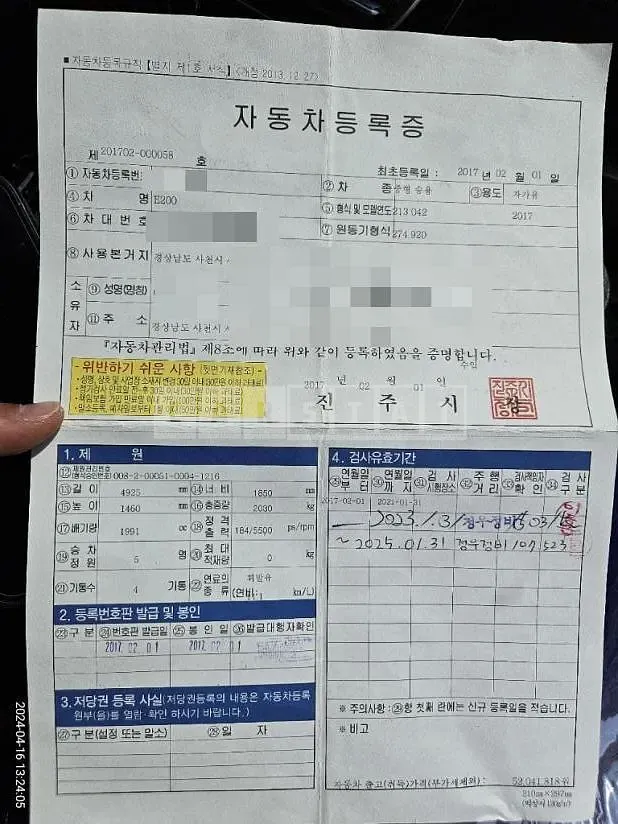 ■ 자동차등록규칙 [별지 제1호 서식] <개정 2013.12.27>
자동차등록증
제 201702-000058 호
최초등록일 : 2017 년 02 월 01 일
① 자동차등록번호
② 차 종 중형 승용
③용도 자가용
④ 차 명 E200
⑤ 형식 및 모델연도 213 042 2017
⑥ 차 대 번 호
⑦ 원동기형식 274 920
⑧ 사용본거지 경상남도 사천시
소유자
⑨ 성명(명칭)
⑪ 주 소 경상남도 사천시
『자동차관리법』 제8조에 따라 위와 같이 등록하였음을 증명합니다.
수입
- 위반하기 쉬운 사항 (뒷면기재참조) -
2017 년 02 월 01 일
진 주 시
1. 제 원
⑫ 제원관리번호 (형식승인번호) 008-2-00051-0004-1216
⑬ 길 이 4925 mm ⑭ 너 비 1850 mm
⑮ 높 이 1460 mm ⑯ 총중량 2030 kg
⑰ 배기량 1991 cc ⑱ 정격출력 184/5500 ps/rpm
⑲ 승차정원 5 명 ⑳ 최대적재량 0 kg
㉑ 기통수 4 기통 ㉒ 연료의 종류 휘발유 (연비: km/L)
2. 등록번호판 발급 및 봉인
㉓ 구 분 ㉔ 번호판 발급일 ㉕ 봉 인 일 ㉖ 발급대행자확인
2017. 02. 01 2017. 02. 01
3. 저당권 등록 사실 (저당권등록의 내용은 자동차등록원부(을)를 열람·확인 하시기 바랍니다.)
㉗ 구분(설정 또는 말소) ㉘ 일 자
4. 검사유효기간
㉙ 연월일부터 ㉚ 연월일까지 ㉛ 검사시행장소 ㉜ 주행거리 ㉝ 검사책임자확인 ㉞ 검사구분
2017-02-01 2021-01-31
~ 2025.01.31 경우정비 107,523
※ 주의사항: ㉙항 첫째 란에는 신규 등록일을 적습니다.
※ 비고
자동차 출고(취득)가격(부가세제외) : 52,041,818원
210㎜×297㎜
(백상지 120g/㎡)
2024-04-16 13:24:05